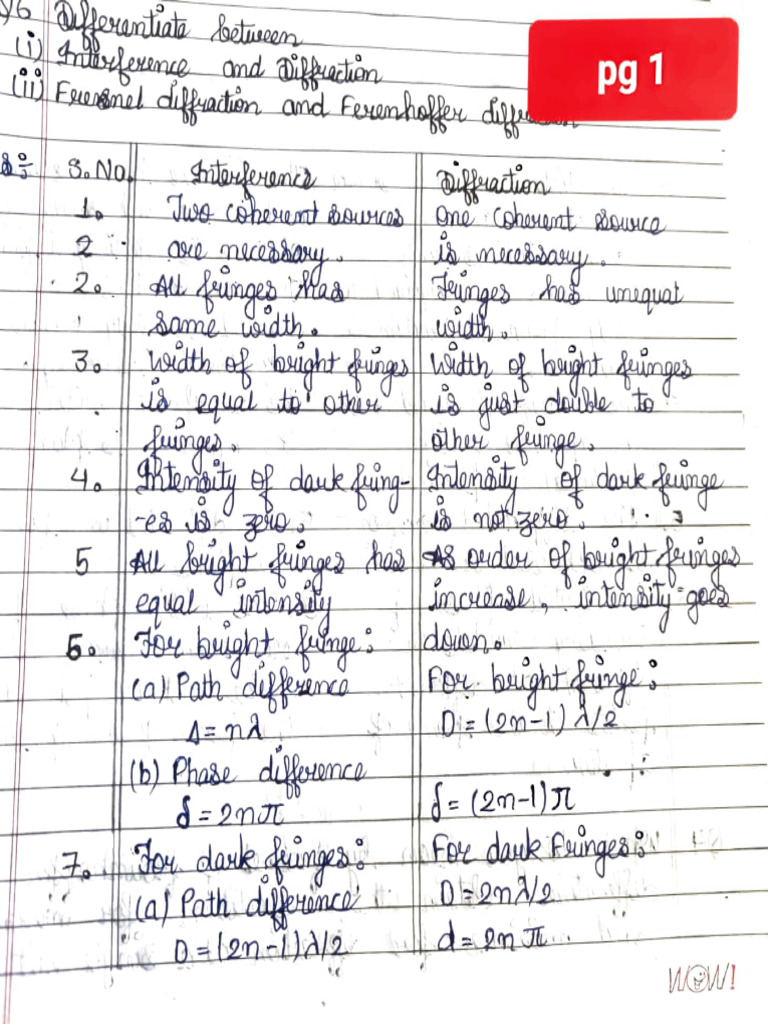 Y6 Differentiate between
(i) Interference and Diffraction
(ii) Fresnel diffraction and Ferenhoffer
pg 1
S.No. Interference Diffraction
1. Two coherent sources One coherent source
2 are necessary. is necessary.
2. All fringes has Fringes has unequal
same width. width.
3. Width of bright fringes Width of bright fringes
is equal to other is just double to
fringes. other fringe.
4. Intensity of dark fring- Intensity of dark fringe
-es is zero. is not zero.
5 All bright fringes has As order of bright fringes
equal intensity increase, intensity goes
6. For bright fringe: down.
(a) Path difference For bright fringe:
Δ = nλ D = (2n-1) λ/2
(b) Phase difference
δ = 2nπ δ = (2n-1)π
7. For dark fringes: For dark Fringes:
(a) Path difference D = 2nλ/2
D = (2n-1) λ/2 d = 2nπ
WOW!